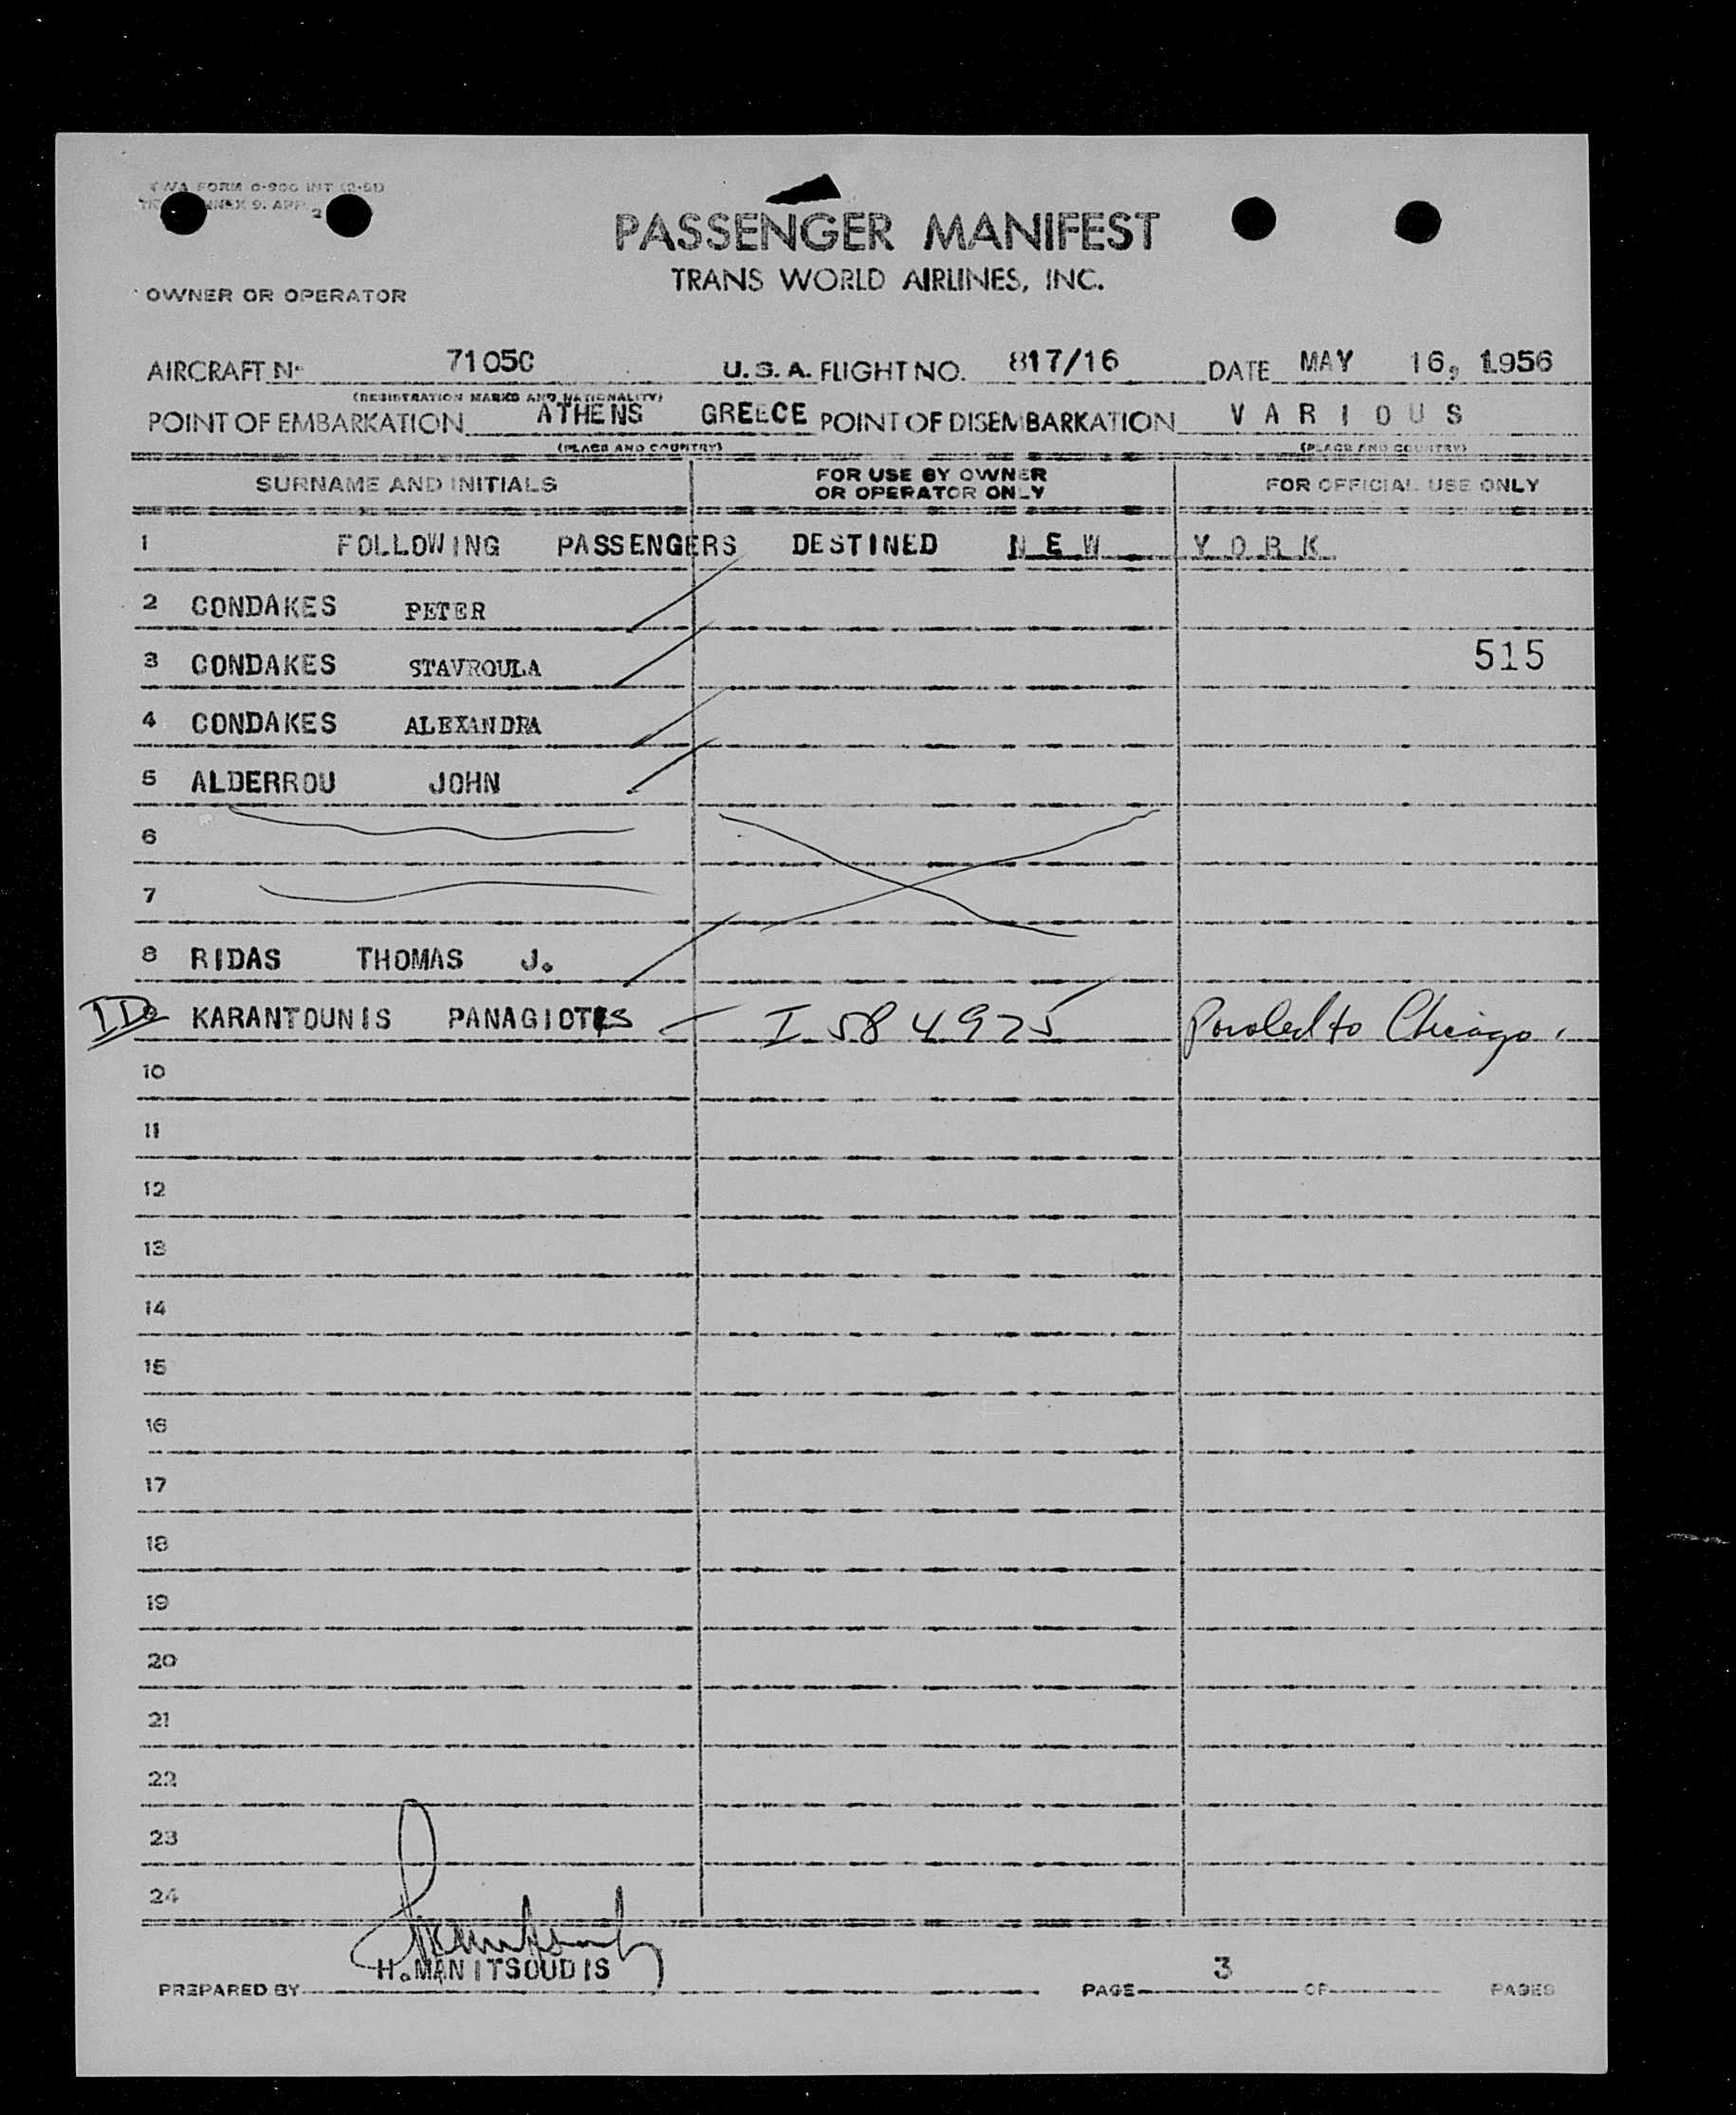 TWA FORM 0-900 INT (2-51)
ANNEX 9. APP 2
PASSENGER MANIFEST
TRANS WORLD AIRLINES, INC.
OWNER OR OPERATOR
AIRCRAFT Nº 7105C U.S.A. FLIGHT NO. 817/16 DATE MAY 16, 1956
(REGISTRATION MARKS AND NATIONALITY)
POINT OF EMBARKATION ATHENS GREECE POINT OF DISEMBARKATION VARIOUS
(PLACE AND COUNTRY) (PLACE AND COUNTRY)
SURNAME AND INITIALS FOR USE BY OWNER OR OPERATOR ONLY FOR OFFICIAL USE ONLY
1 FOLLOWING PASSENGERS DESTINED NEW YORK
2 CONDAKES PETER
3 CONDAKES STAVROULA 515
4 CONDAKES ALEXANDRA
5 ALDERROU JOHN
6
7
8 RIDAS THOMAS J.
ID 9 KARANTOUNIS PANAGIOTIS I 584925 Paroled to Chicago.
10
11
12
13
14
15
16
17
18
19
20
21
22
23
24
H.MANITSOUDIS
PREPARED BY PAGE 3 OF PAGES